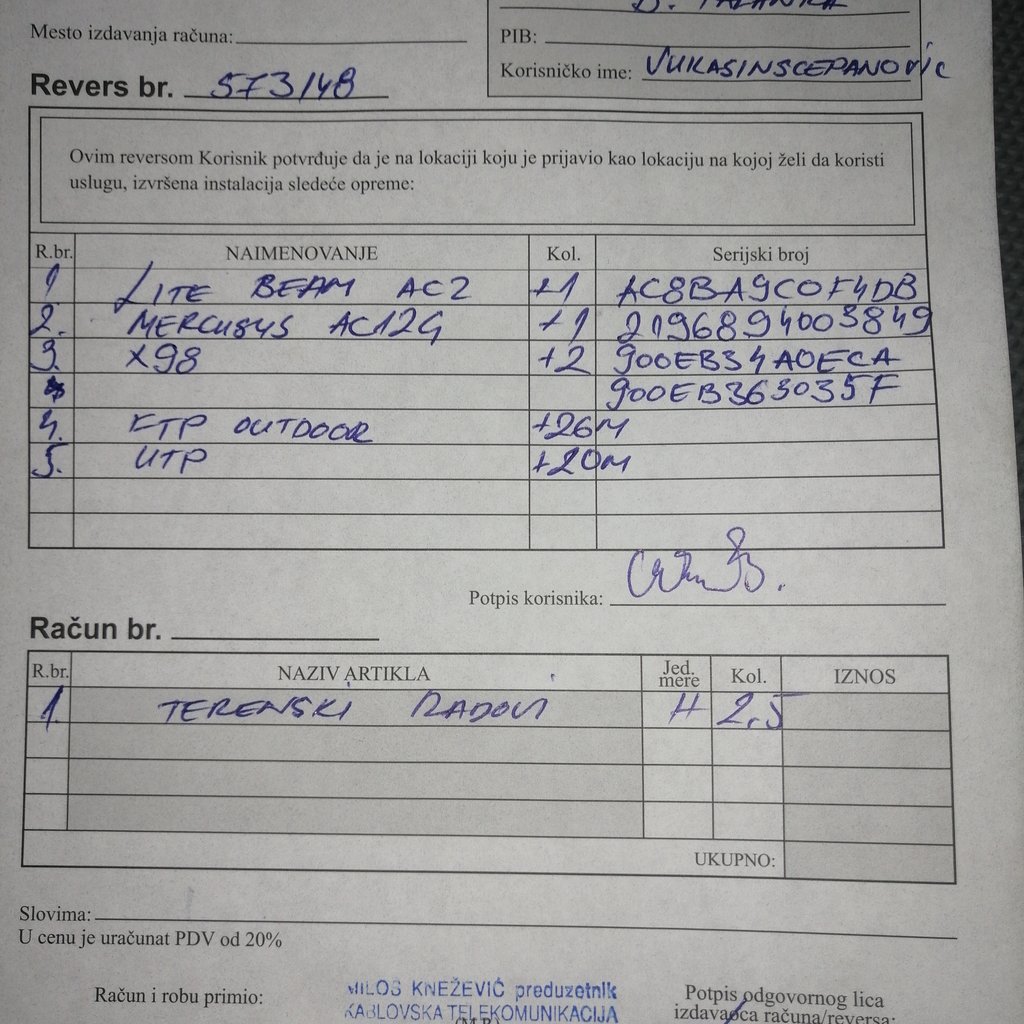 B. PALANKA
Mesto izdavanja računa:
PIB:
Korisničko ime: VUKASINSCEPANOVIC
Revers br. 573/48
Ovim reversom Korisnik potvrđuje da je na lokaciji koju je prijavio kao lokaciju na kojoj želi da koristi
uslugu, izvršena instalacija sledeće opreme:
R.br. NAIMENOVANJE Kol. Serijski broj
1 LITE BEAM AC2 +1 AC8BA9C0F4DB
2. MERCUSYS AC12G +1 2196894003849
3. X98 +2 900EB34A0ECA
900EB363035F
4. FTP OUTDOOR +26M
5. UTP +20M
Potpis korisnika:
Račun br.
R.br. NAZIV ARTIKLA Jed. mere Kol. IZNOS
1. TERENSKI RADOVI H 2.5
UKUPNO:
Slovima:
U cenu je uračunat PDV od 20%
Račun i robu primio:
MILOŠ KNEŽEVIĆ preduzetnik
KABLOVSKA TELEKOMUNIKACIJA
(M.P.)
Potpis odgovornog lica
izdavaoca računa/reversa: